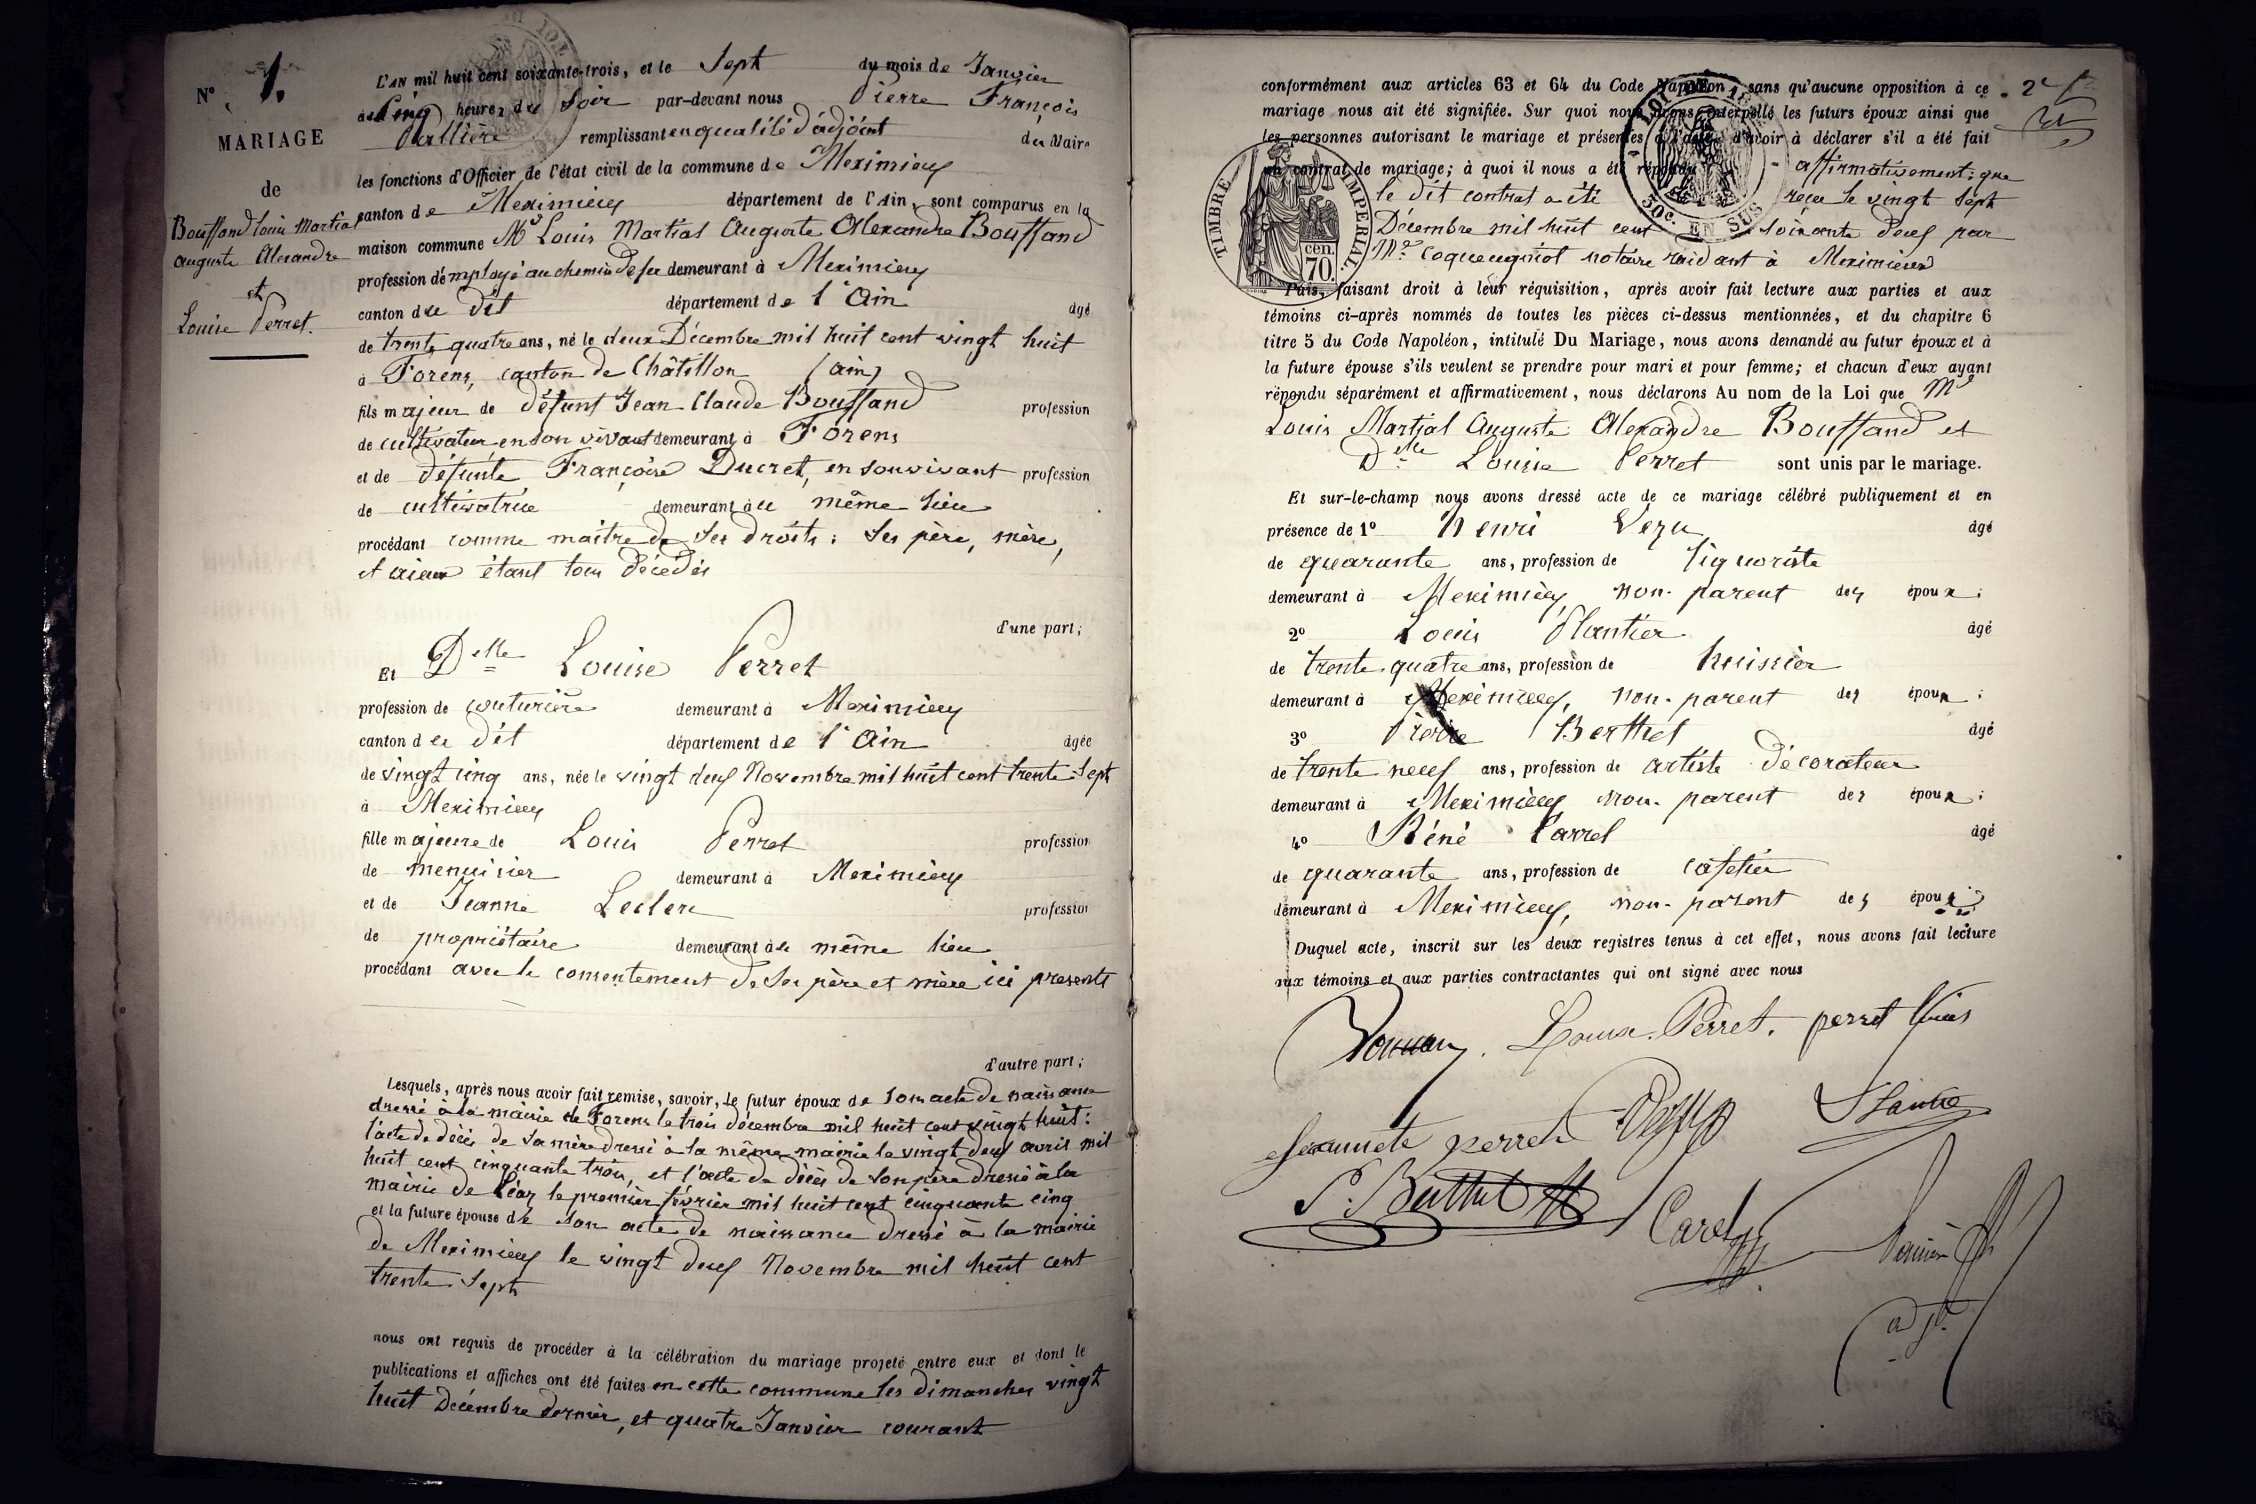 N° 1.
MARIAGE
de
Bouffand Louis Martial
Auguste Alexandre
et
Louise Perret.
L'AN mil huit cent soixante-trois, et le Sept du mois de Janvier
à Cinq heures du Soir par-devant nous Pierre François
remplissant en qualité d'adjoint du Maire
les fonctions d'Officier de l'état civil de la commune de Meximieux
canton de Meximieux département de l'Ain, sont comparus en la
maison commune Mr Louis Martial Auguste Alexandre Bouffand
profession d'employé au chemin de fer demeurant à Meximieux
canton du dit département de l'Ain âgé
de trente quatre ans, né le deux Décembre mil huit cent vingt huit
à Forens, canton de Châtillon (ain)
fils majeur de défunt Jean Claude Bouffand profession
de cultivateur en son vivant demeurant à Forens
et de défunte Françoise Ducret, en son vivant profession
de cultivatrice demeurant au même lieu
procédant comme maître de ses droits : ses père, mère,
et aieux étant tous décédés
d'une part ;
Et Delle Louise Perret
profession de couturière demeurant à Meximieux
canton du dit département de l'Ain âgée
de vingt cinq ans, née le vingt deux Novembre mil huit cent trente Sept
à Meximieux
fille majeure de Louis Perret profession
de menuisier demeurant à Meximieux
et de Jeanne Leclerc profession
de propriétaire demeurant au même lieu
procédant avec le consentement de ses père et mère ici présents
d'autre part ;
Lesquels, après nous avoir fait remise, savoir, le futur époux de son acte de naissance
dressé à la mairie de Forens le trois décembre mil huit cent vingt huit :
l'acte de décès de sa mère dressé à la même mairie le vingt deux avril mil
huit cent cinquante trois, et l'acte de décès de son père dressé à la
mairie de Léaz le premier février mil huit cent cinquante cinq
et la future épouse de son acte de naissance dressé à la mairie
de Meximieux le vingt deux Novembre mil huit cent
trente Sept
nous ont requis de procéder à la célébration du mariage projeté entre eux et dont le
publications et affiches ont été faites en cette commune les dimanches vingt
huit Décembre dernier, et quatre Janvier courant
conformément aux articles 63 et 64 du Code Napoléon, sans qu'aucune opposition à ce
mariage nous ait été signifiée. Sur quoi nous avons interpellé les futurs époux ainsi que
les personnes autorisant le mariage et présentes à l'acte, d'avoir à déclarer s'il a été fait
un contrat de mariage ; à quoi il nous a été répondu affirmativement ; que
le dit contrat a été reçu le vingt Sept
Décembre mil huit cent soixante deux par
Me Coqueugniot notaire résidant à Meximieux
TIMBRE IMPERIAL.
cen.
70.
30c. EN SUS
Puis, faisant droit à leur réquisition, après avoir fait lecture aux parties et aux
témoins ci-après nommés de toutes les pièces ci-dessus mentionnées, et du chapitre 6
titre 5 du Code Napoléon, intitulé Du Mariage, nous avons demandé au futur époux et à
la future épouse s'ils veulent se prendre pour mari et pour femme ; et chacun d'eux ayant
répondu séparément et affirmativement, nous déclarons Au nom de la Loi que Mr
Louis Martial Auguste Alexandre Bouffand et
Delle Louise Perret sont unis par le mariage.
Et sur-le-champ nous avons dressé acte de ce mariage célébré publiquement et en
présence de 1° Henri Vezu âgé
de quarante ans, profession de liquoriste
demeurant à Meximieux, non-parent des époux ;
2° Louis Plantier âgé
de trente quatre ans, profession de huissier
demeurant à Meximieux, non-parent des époux ;
3° Pierre Berthet âgé
de trente neuf ans, profession de artiste décorateur
demeurant à Meximieux non-parent des époux ;
4° Réné Carrel âgé
de quarante ans, profession de cafetier
demeurant à Meximieux, non-parent des époux ;
Duquel acte, inscrit sur les deux registres tenus à cet effet, nous avons fait lecture
aux témoins et aux parties contractantes qui ont signé avec nous
Louise Perret. perret Louis
Jeannete perret
P. Berthet
Carel